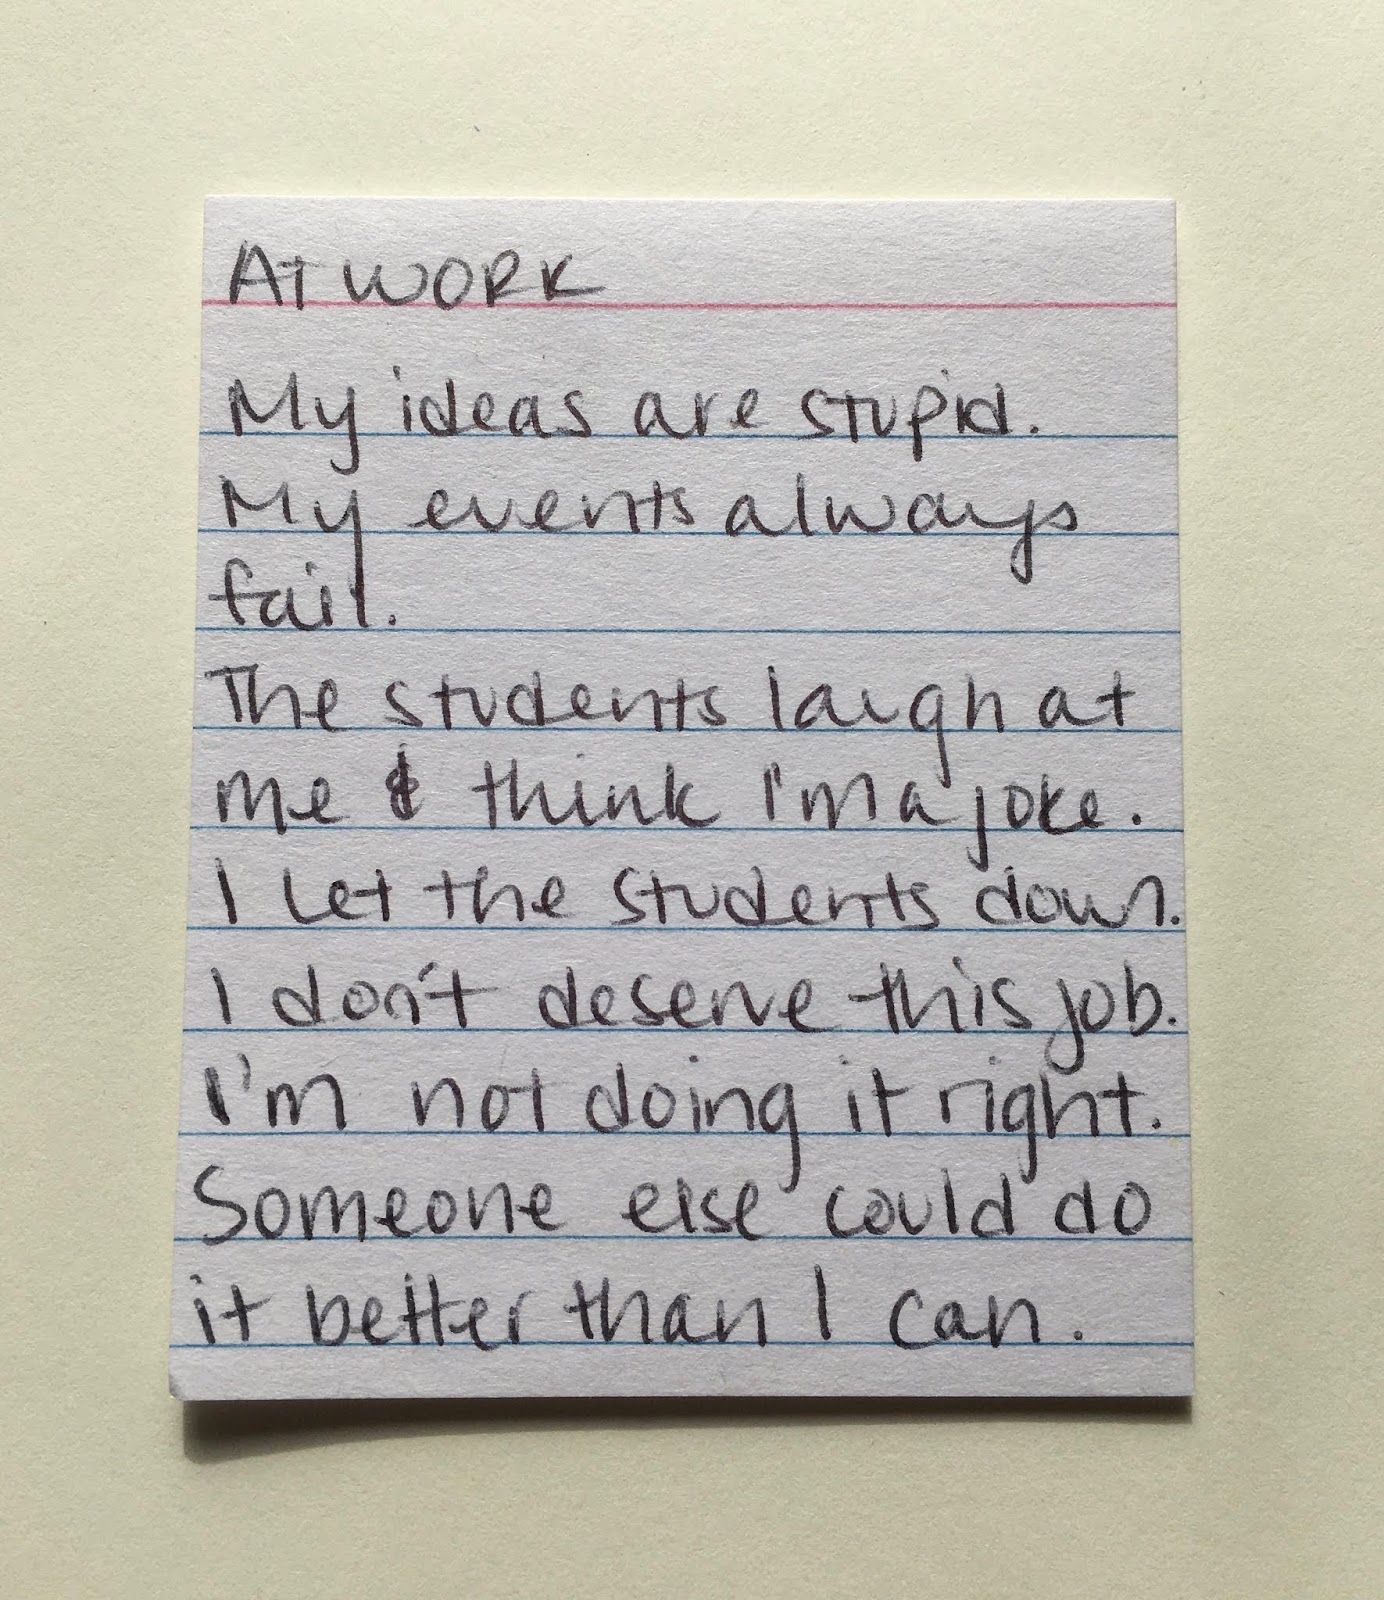 AT WORK
My ideas are stupid.
My events always
fail.
The students laugh at
me & think I'm a joke.
I let the students down.
I don't deserve this job.
I'm not doing it right.
Someone else could do
it better than I can.